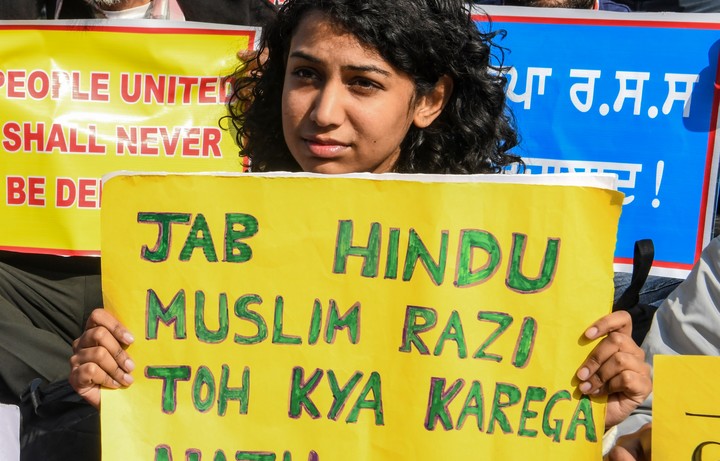 PEOPLE UNITED
SHALL NEVER
BE DE
ਪਾ ਰ.ਸ.ਸ
!
JAB HINDU
MUSLIM RAZI
TOH KYA KAREGA